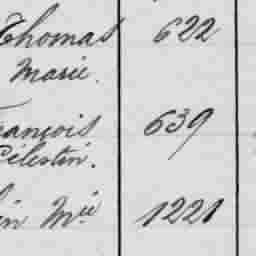 Thomas 622
Marie.
François 639
Célestin.
in Mie 1221